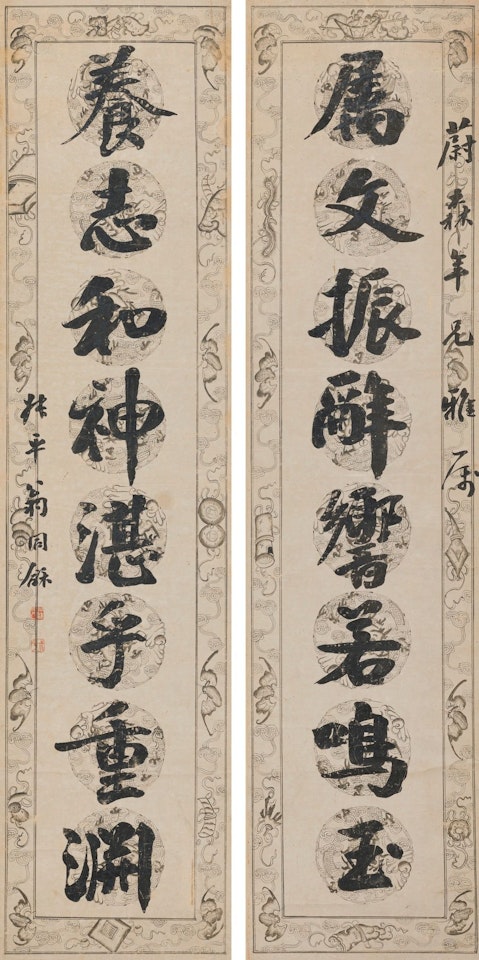 蔚森年兄雅属
属文振辭響若鳴玉
養志和神湛乎重淵
叔平翁同龢